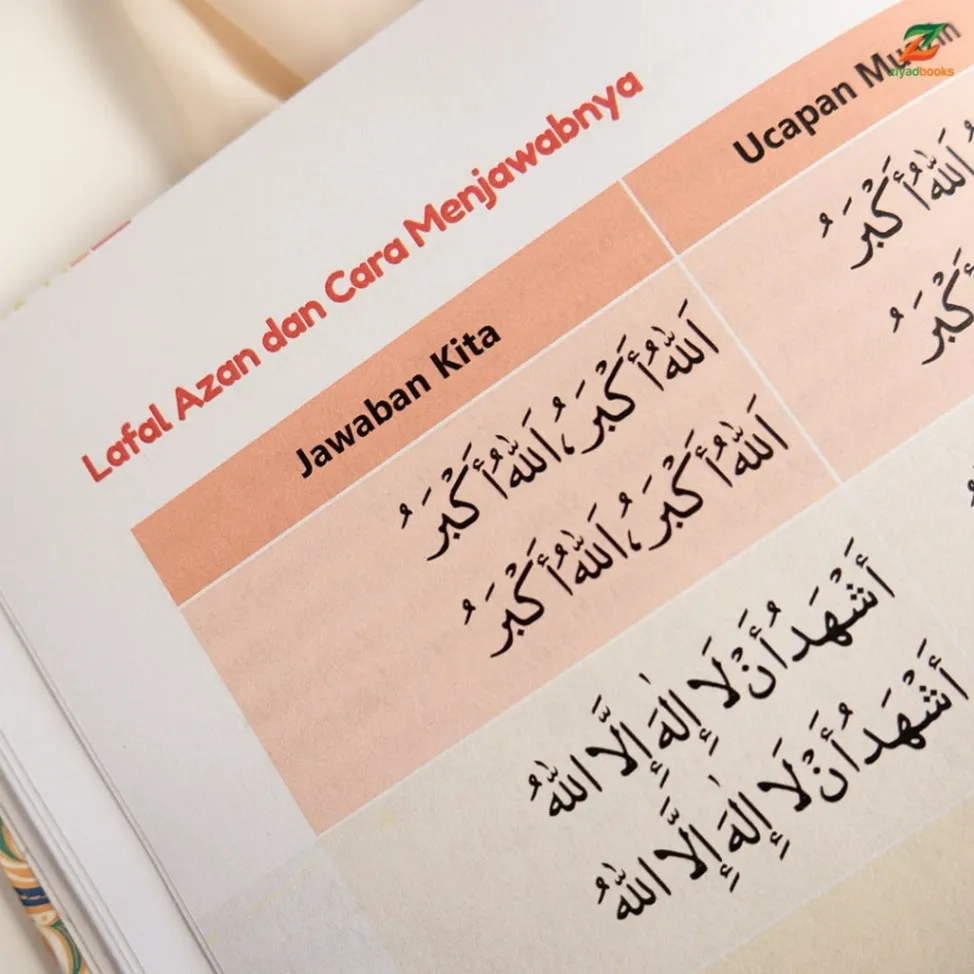 ziyadbooks
Lafal Azan dan Cara Menjawabnya
Ucapan
Jawaban Kita
اللهُ أَكْبَرُ
أَكْبَرُ
اللهُ أَكْبَرُ، اللهُ أَكْبَرُ
اللهُ أَكْبَرُ، اللهُ أَكْبَرُ
أَشْهَدُ أَنْ لَا إِلٰهَ إِلَّا اللهُ
أَشْهَدُ أَنْ لَا إِلٰهَ إِلَّا اللهُ